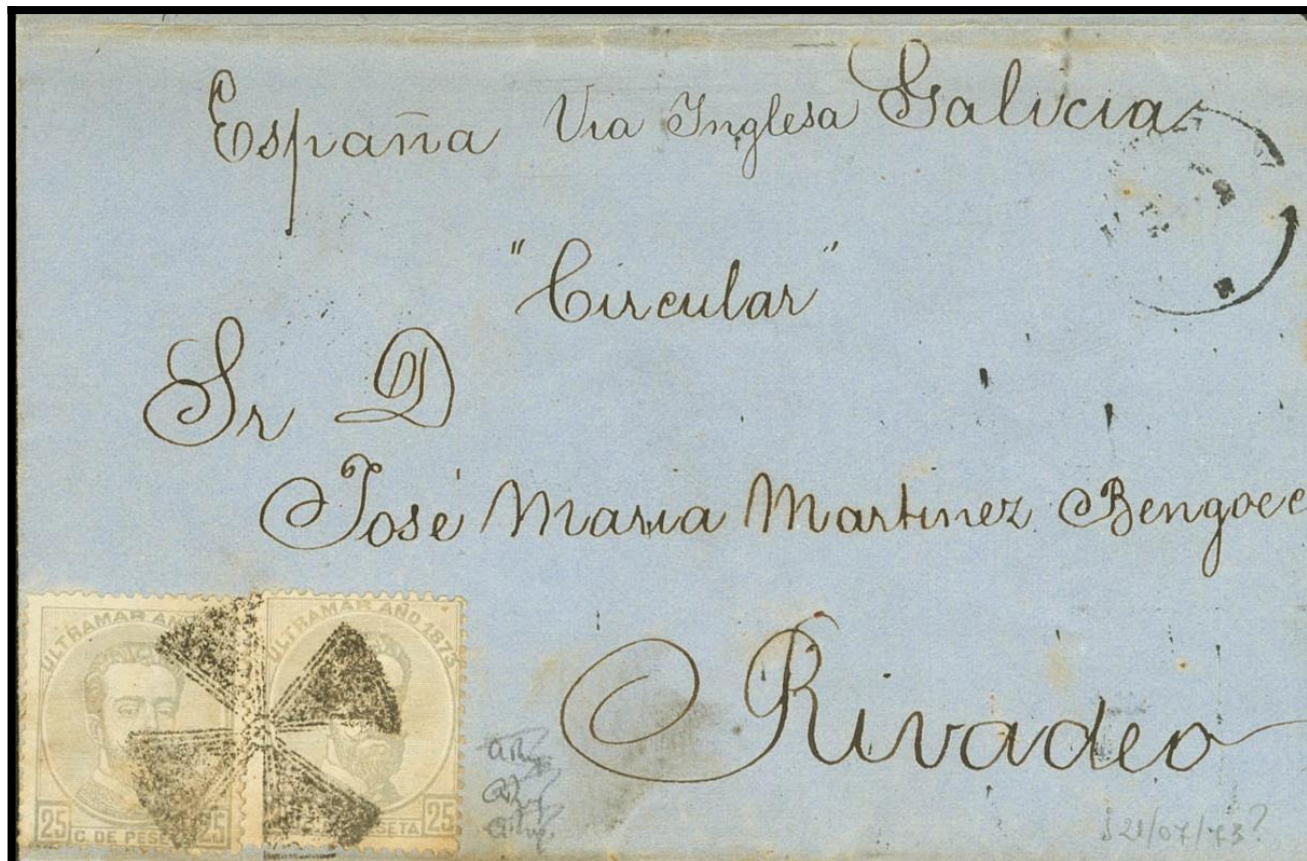 España Via Inglesa Galicia
"Circular"
Sr D
José Maria Martinez Bengoec
Rivadeo
ULTRAMAR AÑ
ULTRAMAR AÑO 1873
25 C. DE PESE 25
PESETA 25
21/07/73?